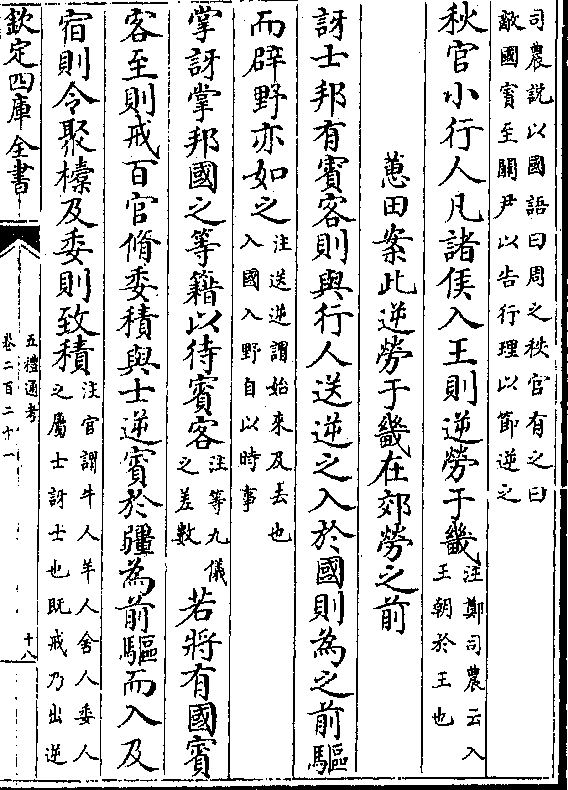 司農説以國語曰周之秩官有之曰
敵國賓至關尹以告行理以節逆之
秋官小行人凡諸侯入王則逆勞于畿注鄭司農云入
王朝於王也
蕙田案此逆勞于畿在郊勞之前
訝士邦有賓客則與行人送逆之入於國則為之前驅
而辟野亦如之注送逆謂始來及去也
入國入野自以時事
掌訝掌邦國之等籍以待賓客注等九儀
之差數若將有國賓
客至則戒百官脩委積與士逆賓於疆為前驅而入及
宿則令聚𣝔及委則致積注官謂牛人羊人舍人委人
之屬士訝士也既戒乃出逆
欽定四庫全書
五禮通考
卷二百二十一
十八